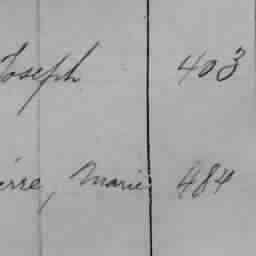 Joseph 403
erre, Marie 484